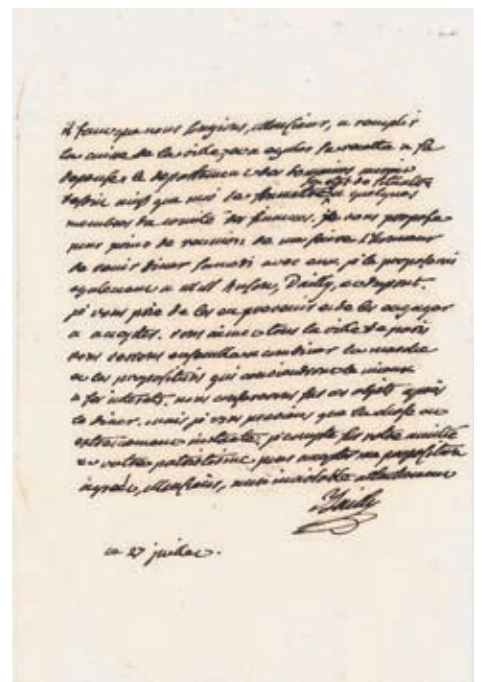 il faut que nous songions, Monsieur, a remplir
la caisse de la ville, et a egaler la recette a la
depense. le departement des domaines
desire ainsi que moi de quelques
membres du comité des finances. je vous propose
pour point de reunion de me faire l'honneur
de venir diner samedi avec eux, je le proposerai
egalement a M M Dailly, et dupont.
je vous prie de les en prevenir et de les engager
a accepter. vous aimez tous la ville de paris
nous verrons ensemble a combiner la marche
et les propositions qui conviendront le mieux
a ses interets. nous causerons sur ces objets après
le diner. mais je vous previens que la chose est
extremement instante. je compte sur votre amitié
et votre patriotisme pour accepter ma proposition
agreés, Monsieur, mon inviolable attachement
Bailly
ce 27 juillet.